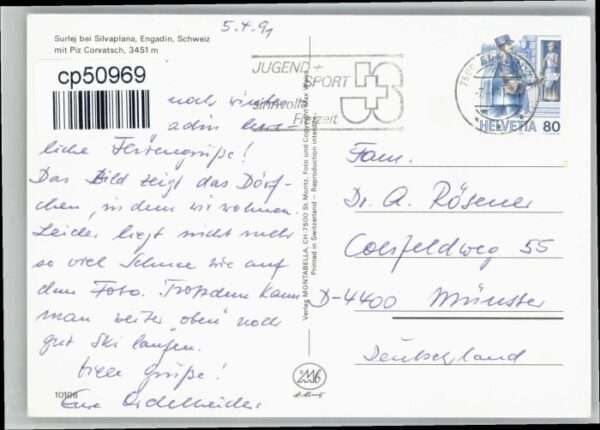 5.4.91
Surlej bei Silvaplana, Engadin, Schweiz
mit Piz Corvatsch, 3451 m
cp50969
noch
adin herz-
liche Feriengrüße!
Das Bild zeigt das Dörf-
chen, in dem wir wohnen.
Leider liegt nicht mehr
so viel Schnee wie auf
dem Foto. Trotzdem kann
man weiter "oben" noch
gut Ski laufen.
Viele Grüße!
Eure
10106
Verlag MONTABELLA, CH-7500 St. Moritz, Foto und Copyright Max Weiss
Printed in Switzerland – Reproduction interdite
JUGEND +
SPORT
sinnvolle
Freizeit
J+S
7500
HELVETIA 80
Fam.
Dr. A. Rösener
Coesfeldweg 55
D-4400 Münster
Deutschland